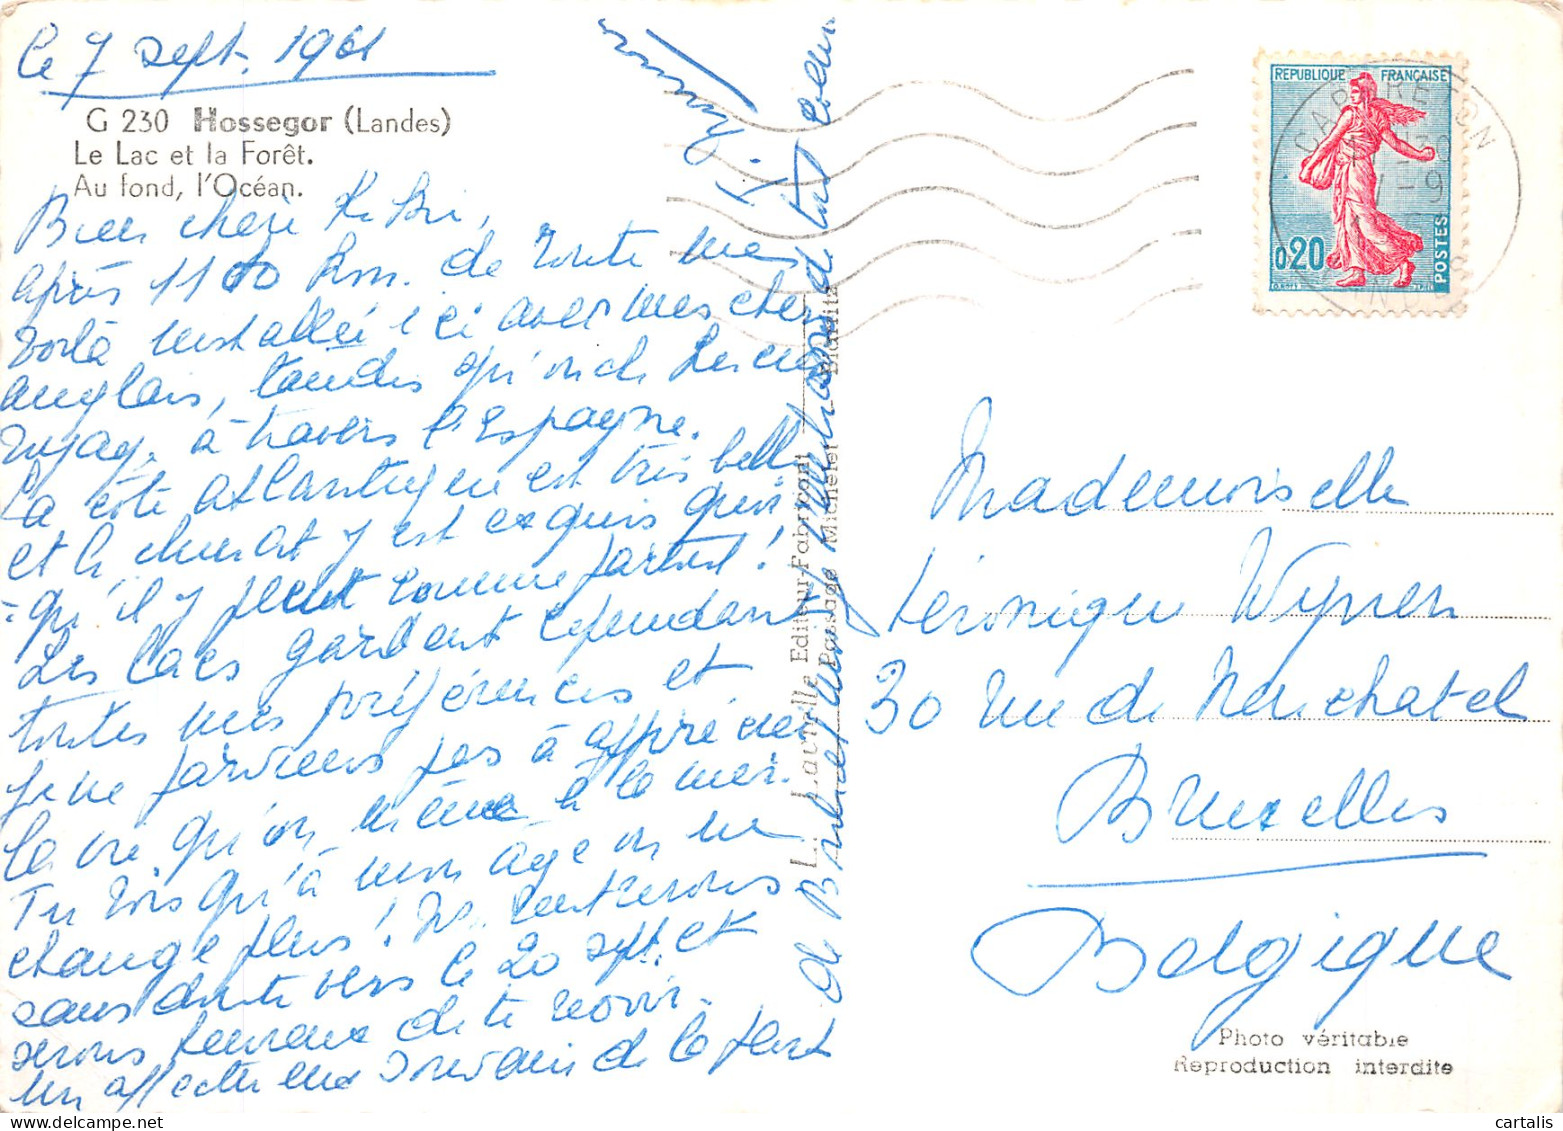 le 7 sept. 1961
G 230 Hossegor (Landes)
Le Lac et la Forêt.
Au fond, l'Océan.
Bien chère
après 1100 km. de route me
voilà installée ici avec mes chers
anglais, tandis qu'
voyag. à travers l'Espagne.
La côte atlantique est très belle
et le climat y est exquis quoi-
-qu'il y pleut comme partout !
Les lacs gardent cependant
toutes mes préférences et
je ne parviens pas à apprécier
la vie qu'on mène à la mer.
Tu vois qu'à mon âge on ne
change plus ! Ns. rentrerons
sans doute vers le 20 sept. et
serons heureux de te revoir.
Un affectueux souvenir de la part
de et de tout coeur
L. Editeur Fabricant
Passage Michelet - Biarritz
REPUBLIQUE FRANÇAISE
0,20
POSTES
CAPBRETON
Mademoiselle
Véronique Wynen
30 rue de Neuchatel
Bruxelles
Belgique
Photo véritable
Reproduction interdite
cartalis